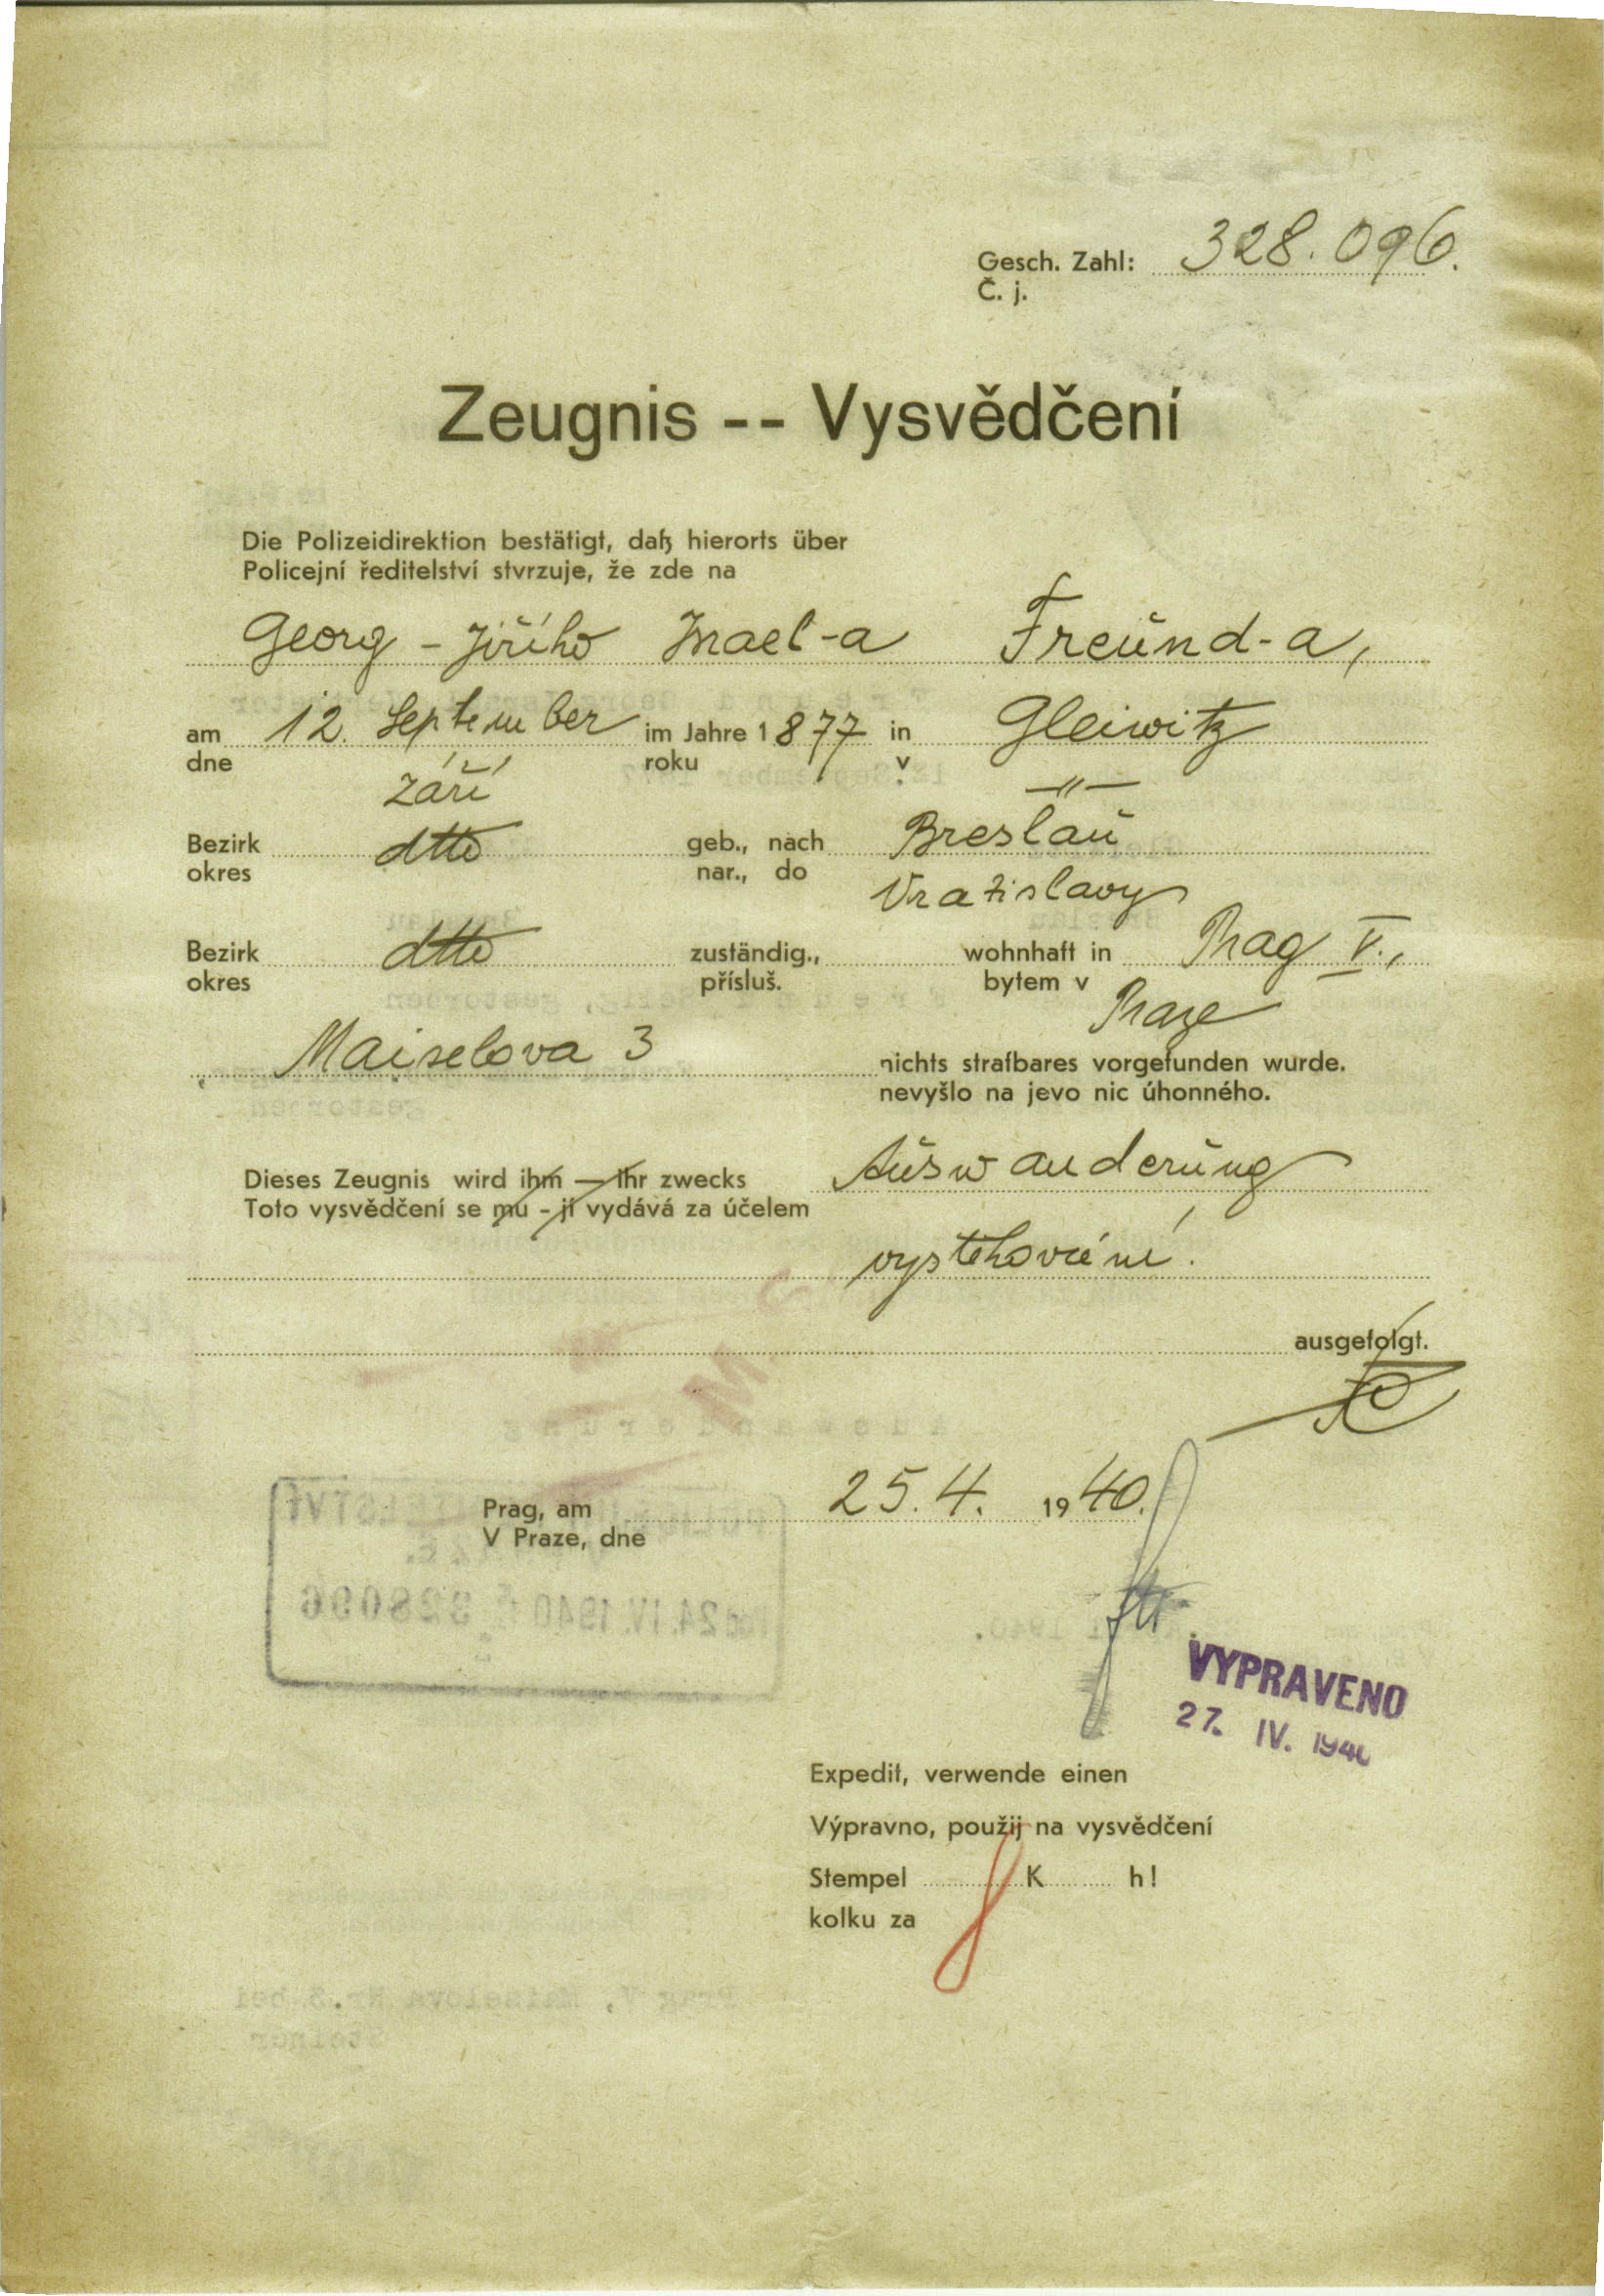 Gesch. Zahl: 328.096.
Č. j.
Zeugnis -- Vysvědčení
Die Polizeidirektion bestätigt, daß hierorts über
Policejní ředitelství stvrzuje, že zde na
Georg - Jiřího Israel-a Freund-a,
am 12. September im Jahre 1877 in Gleiwitz
dne září roku v —〃—
Bezirk dtto geb., nach Breslau
okres nar., do Vratislavy
Bezirk dtto zuständig., wohnhaft in Prag V.,
okres přísluš. bytem v Praze
Maiselova 3 nichts strafbares vorgefunden wurde.
nevyšlo na jevo nic úhonného.
Dieses Zeugnis wird ihm — ihr zwecks Auswanderung
Toto vysvědčení se mu - jí vydává za účelem
vystěhování.
ausgefolgt.
Prag, am 25. 4. 1940.
V Praze, dne
24. IV. 1940 328096
VYPRAVENO
27. IV. 1940
Expedit, verwende einen
Výpravno, použij na vysvědčení
Stempel K h!
kolku za
Prag V, Maiselova Nr. 3 bei
Steiner